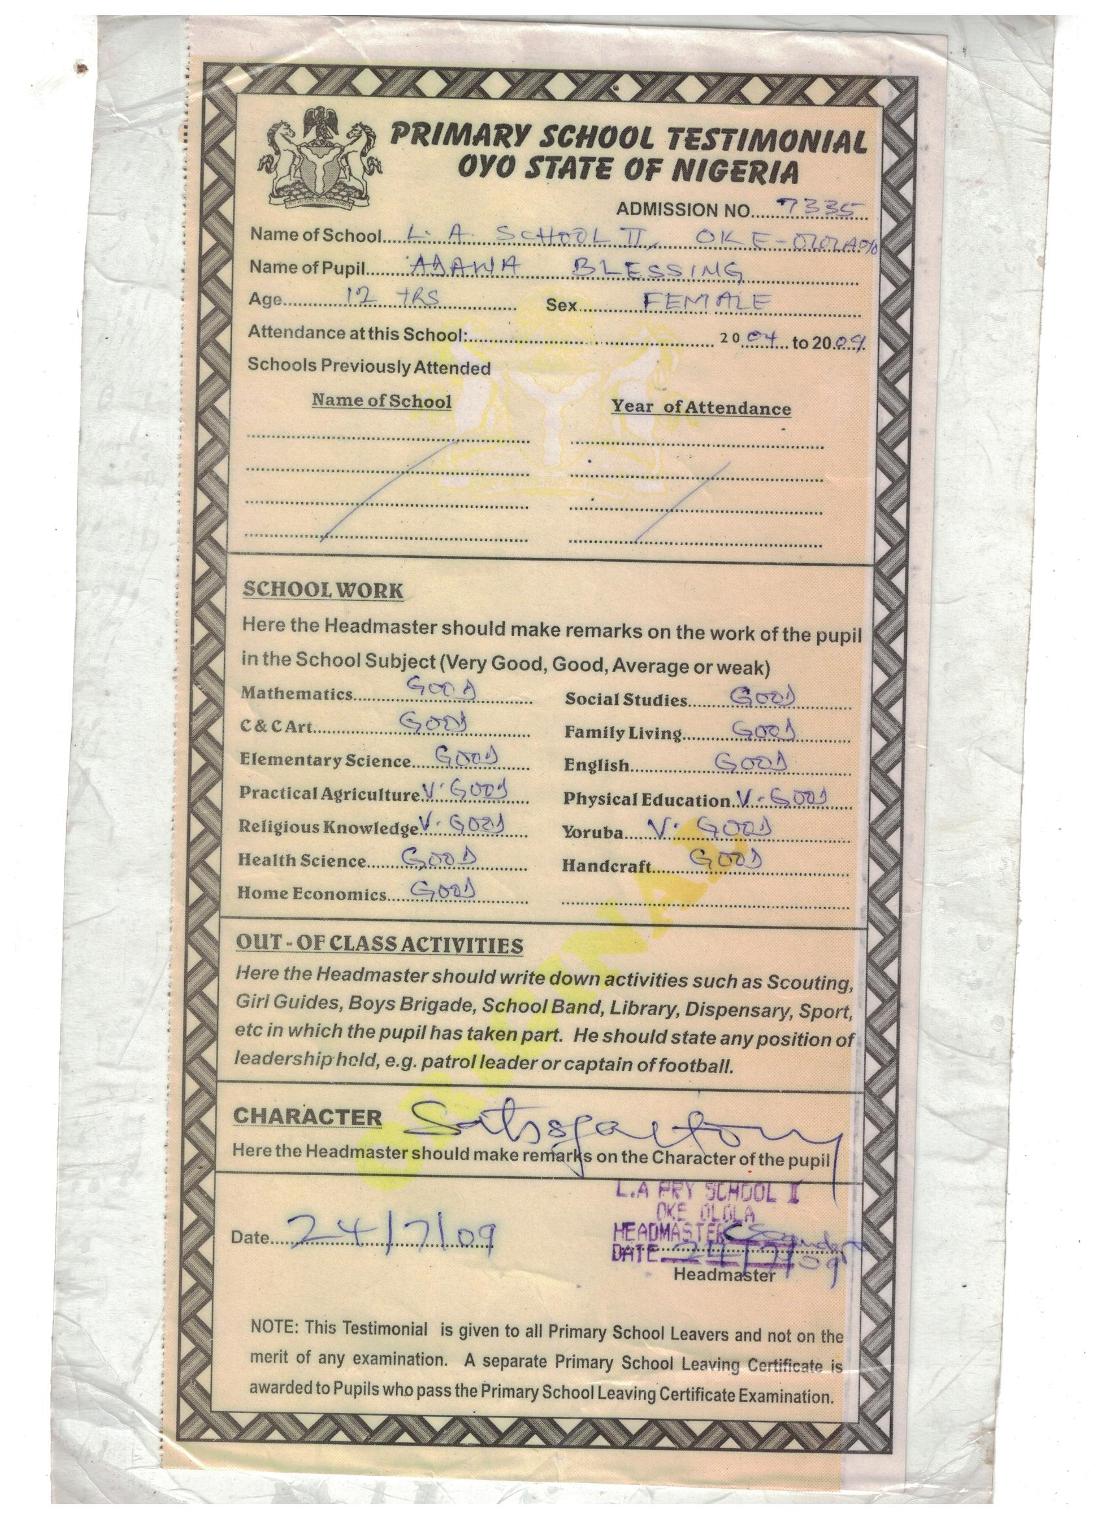 PRIMARY SCHOOL TESTIMONIAL
OYO STATE OF NIGERIA
ADMISSION NO. 7335
Name of School L. A. SCHOOL II, OKE-
Name of Pupil BLESSING
Age 12 YRS Sex FEMALE
Attendance at this School: 2004 to 2009
Schools Previously Attended
Name of School Year of Attendance
SCHOOL WORK
Here the Headmaster should make remarks on the work of the pupil
in the School Subject (Very Good, Good, Average or weak)
Mathematics GOOD Social Studies GOOD
C & C Art GOOD Family Living GOOD
Elementary Science GOOD English GOOD
Practical Agriculture V. GOOD Physical Education V. GOOD
Religious Knowledge V. GOOD Yoruba V. GOOD
Health Science GOOD Handcraft GOOD
Home Economics GOOD
ORIGINAL
OUT - OF CLASS ACTIVITIES
Here the Headmaster should write down activities such as Scouting,
Girl Guides, Boys Brigade, School Band, Library, Dispensary, Sport,
etc in which the pupil has taken part. He should state any position of
leadership hold, e.g. patrol leader or captain of football.
CHARACTER Satisfactory
Here the Headmaster should make remarks on the Character of the pupil
L.A PRY SCHOOL II
OKE OLOLA
HEADMASTER
Date 24/7/09 DATE 24/7/09
Headmaster
NOTE: This Testimonial is given to all Primary School Leavers and not on the
merit of any examination. A separate Primary School Leaving Certificate is
awarded to Pupils who pass the Primary School Leaving Certificate Examination.